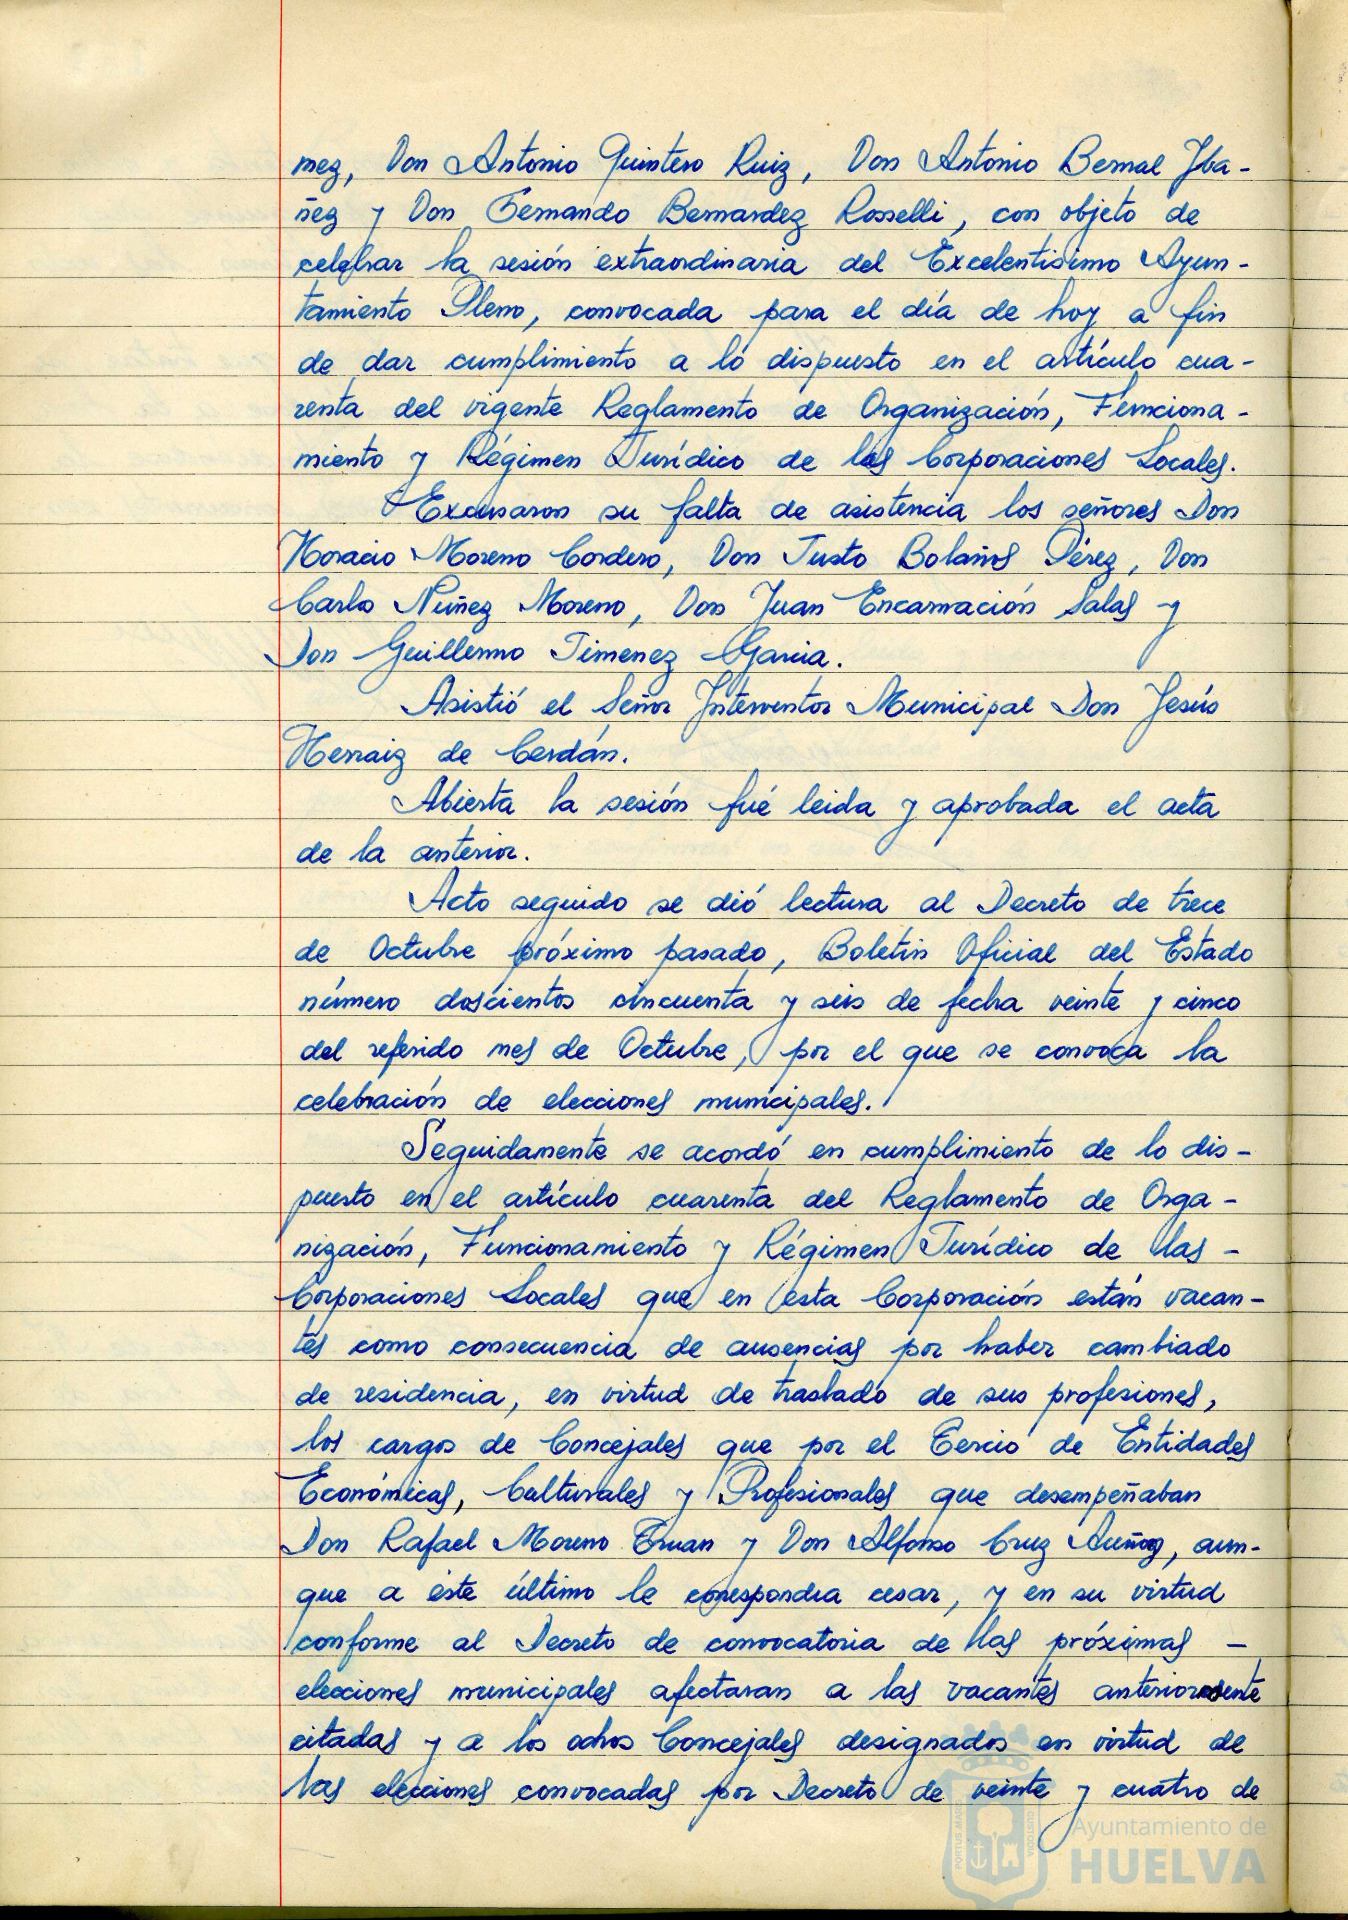 mez, Don Antonio Quintero Ruiz, Don Antonio Bernal Yba-
ñez y Don Fernando Bernardez Rosselli, con objeto de
celebrar la sesión extraordinaria del Excelentisimo Ayun-
tamiento Pleno, convocada para el día de hoy a fin
de dar cumplimiento a lo dispuesto en el artículo cua-
renta del vigente Reglamento de Organización, Funciona-
miento y Régimen Jurídico de las Corporaciones Locales.
Excusaron su falta de asistencia los señores Don
Horacio Moreno Cordero, Don Justo Bolaños Pérez, Don
Carlo Núñez Moreno, Don Juan Encarnación Salas y
Don Guillermo Jimenez Garcia.
Asistió el Señor Interventor Municipal Don Jesús
Herraiz de Cerdán.
Abierta la sesión fué leida y aprobada el acta
de la anterior.
Acto seguido se dió lectura al Decreto de trece
de Octubre próximo pasado, Boletín Oficial del Estado
número doscientos cincuenta y seis de fecha veinte y cinco
del referido mes de Octubre, por el que se convoca la
celebración de elecciones municipales.
Seguidamente se acordó en cumplimiento de lo dis-
puesto en el artículo cuarenta del Reglamento de Orga-
nización, Funcionamiento y Régimen Jurídico de las -
Corporaciones Locales que en esta Corporación están vacan-
tes como consecuencia de ausencias por haber cambiado
de residencia, en virtud de traslado de sus profesiones,
los cargos de Concejales que por el Tercio de Entidades
Económicas, Culturales y Profesionales que desempeñaban
Don Rafael Moreno y Don Alfonso Cruz aun-
que a éste último le correspondia cesar, y en su virtud
conforme al Decreto de convocatoria de las próximas -
elecciones municipales afectaran a las vacantes anteriormente
citadas y a los ochos Concejales designados en virtud de
las elecciones convocadas por Decreto de veinte y cuatro de
PORTUS MARIS CUSTODIA
Ayuntamiento de
HUELVA